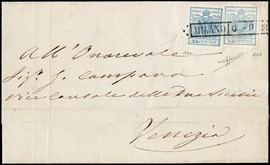 MILANO
All' Onorevole
Sigr. G. Campana
Vice Console delle Due Sicilie
Venezia